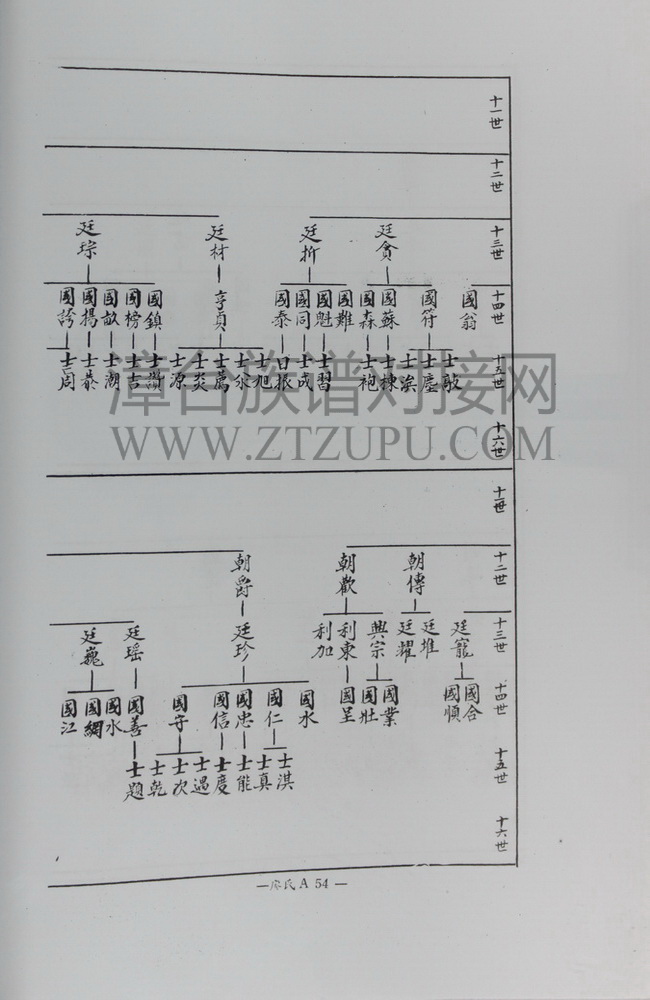 十一世
十二世
十三世
廷貪
廷折
廷材
廷琮
十四世
國翁
國符
國蘇
國森
國難
國魁
國同
國泰
亨貞
國鎮
國榜
國畝
國揚
國誇
十五世
士敲
士塵
士濱
士棟
士袍
士習
士成
日振
士旭
士永
士萬
士炎
士源
士讚
士吉
士湖
士泰
士周
十六世
漳台族谱对接网
WWW.ZTZUPU.COM
十一世
十二世
朝傳
朝歡
朝爵
十三世
廷寵
廷堆
廷耀
興宗
利東
利加
廷珍
廷瑤
廷巍
十四世
國合
國順
國業
國壯
國呈
國水
國仁
國忠
國信
國守
國善
國水
國網
國江
十五世
士淇
士真
士能
士度
士遇
士次
士乾
士題
十六世
—廖氏 A 54 —